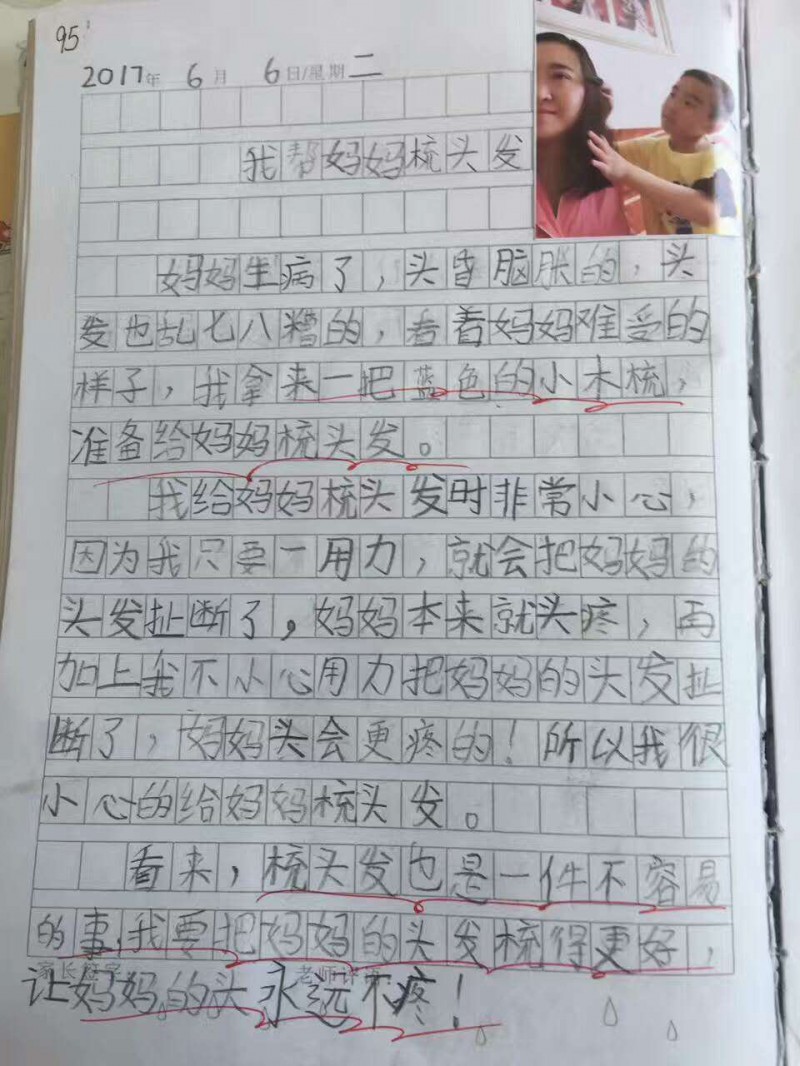 95
2017年 6月 6日/星期二
我帮妈妈梳头发
妈妈生病了，头昏脑胀的，头
发也乱七八糟的，看着妈妈难受的
样子，我拿来一把蓝色的小木梳，
准备给妈妈梳头发。
我给妈妈梳头发时非常小心，
因为我只要一用力，就会把妈妈的
头发扯断了，妈妈本来就头疼，再
加上我不小心用力把妈妈的头发扯
断了，妈妈头会更疼的！所以我很
小心的给妈妈梳头发。
看来，梳头发也是一件不容易
的事，我要把妈妈的头发梳得更好，
家长签字 老师评
让妈妈的头永远不疼！